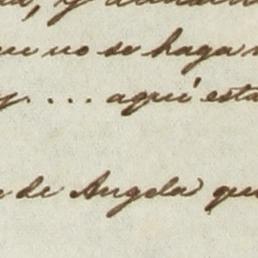 y
no se haga
y.... aquí esta
de Angela que